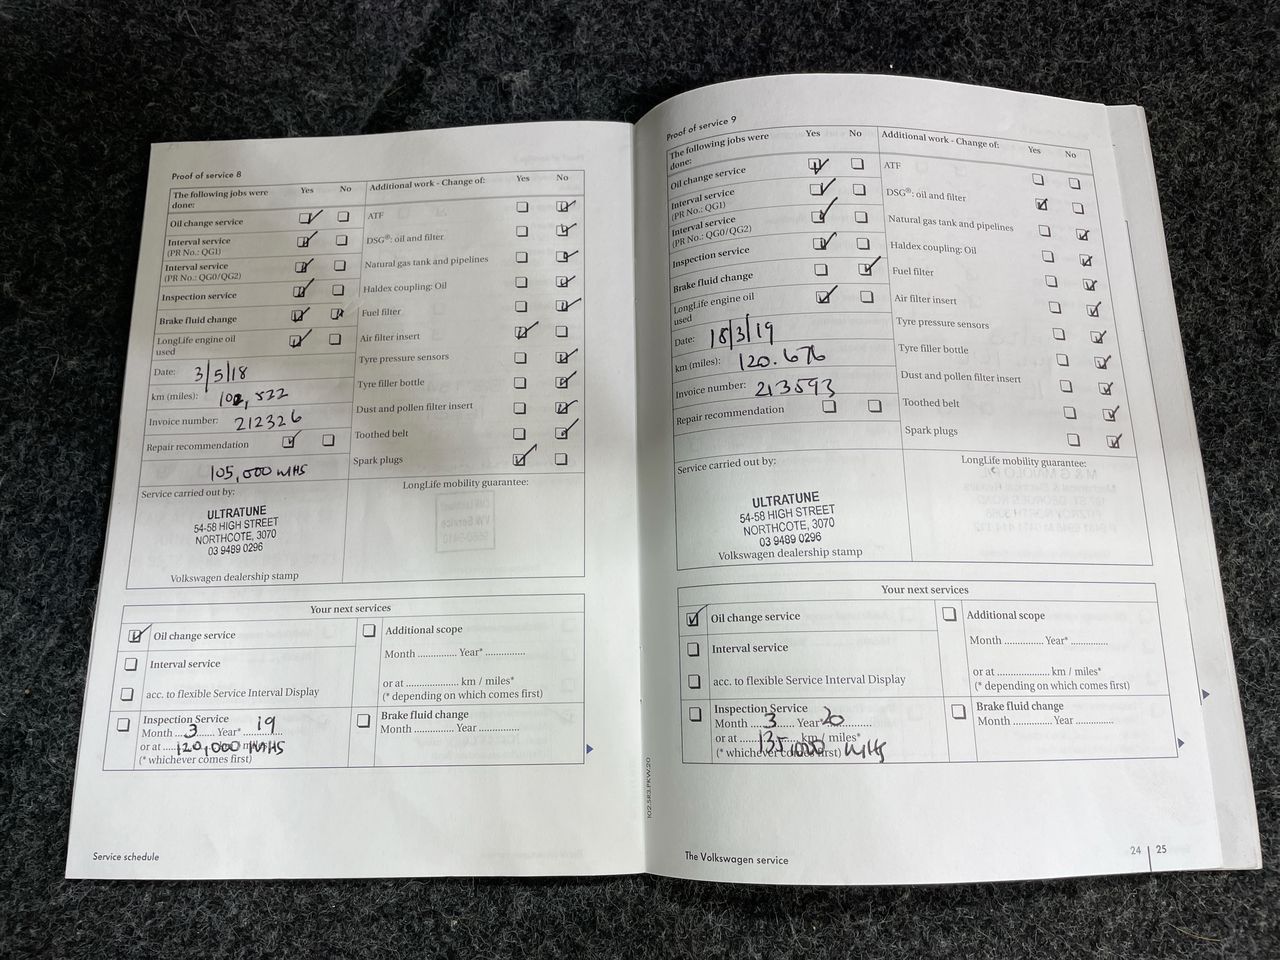 Proof of service 8
The following jobs were done: Yes No Additional work - Change of: Yes No
Oil change service
Interval service
(PR No.: QG1)
Interval service
(PR No.: QG0/QG2)
Inspection service
Brake fluid change
LongLife engine oil
used
Date: 3/5/18
km (miles): 102,522
Invoice number: 212326
Repair recommendation
105,000
ATF
DSG®: oil and filter
Natural gas tank and pipelines
Haldex coupling: Oil
Fuel filter
Air filter insert
Tyre pressure sensors
Tyre filler bottle
Dust and pollen filter insert
Toothed belt
Spark plugs
Service carried out by:
ULTRATUNE
54-58 HIGH STREET
NORTHCOTE, 3070
03 9489 0296
Volkswagen dealership stamp
LongLife mobility guarantee:
Your next services
Oil change service
Interval service
acc. to flexible Service Interval Display
Inspection Service
Month 3 Year* 19
or at 120,000
(* whichever comes first)
Additional scope
Month .............. Year* ..............
or at .................... km / miles*
(* depending on which comes first)
Brake fluid change
Month .............. Year ..............
Service schedule
102.5R3.PKW.20
Proof of service 9
The following jobs were
done: Yes No Additional work - Change of: Yes No
Oil change service
Interval service
(PR No.: QG1)
Interval service
(PR No.: QG0/QG2)
Inspection service
Brake fluid change
LongLife engine oil
used
Date: 18/3/19
km (miles): 120.676
Invoice number: 213593
Repair recommendation
ATF
DSG®: oil and filter
Natural gas tank and pipelines
Haldex coupling: Oil
Fuel filter
Air filter insert
Tyre pressure sensors
Tyre filler bottle
Dust and pollen filter insert
Toothed belt
Spark plugs
Service carried out by:
ULTRATUNE
54-58 HIGH STREET
NORTHCOTE, 3070
03 9489 0296
Volkswagen dealership stamp
LongLife mobility guarantee:
Your next services
Oil change service
Interval service
acc. to flexible Service Interval Display
Inspection Service
Month 3 Year* 20
or at 135,000 km / miles*
(* whichever comes first)
Additional scope
Month .............. Year* ..............
or at .................... km / miles*
(* depending on which comes first)
Brake fluid change
Month .............. Year ..............
The Volkswagen service
24 | 25